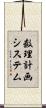 数理計画
システム